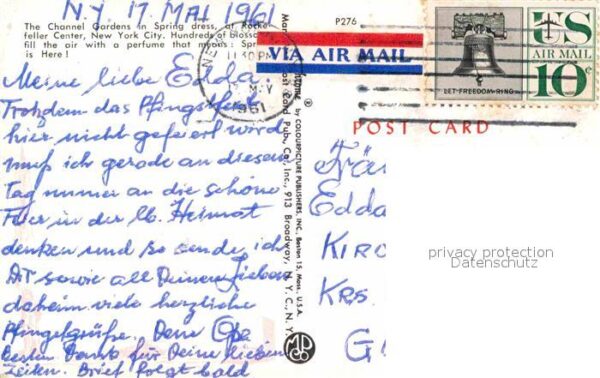 NY 17. MAI 1961
The Channel Gardens in Spring dress, at Rocke-
feller Center, New York City. Hundreds of blosso
fill the air with a perfume that
is Here!
P276
VIA AIR MAIL
LET·FREEDOM·RING
US
AIR MAIL
10¢
POST CARD
by COLOURPICTURE PUBLISHERS, INC., Boston 15, Mass. U.S.A.
Card Pub. Co., Inc., 913 Broadway, N. Y. C., N. Y.
Meine liebe Edda.
Trotzdem das Pfingstfest
hier nicht gefeiert wird
muß ich gerade an diesem
Tag immer an die schöne
Feier in der lb. Heimat
denken und so sende ich
Dir sowie all Deinen Lieben
daheim viele herzliche
Pfingstgrüße. Deine
Besten Dank für Deine lieben
Zeilen. Brief folgt bald
Edda
KIRC
KRS.
G
privacy protection
Datenschutz